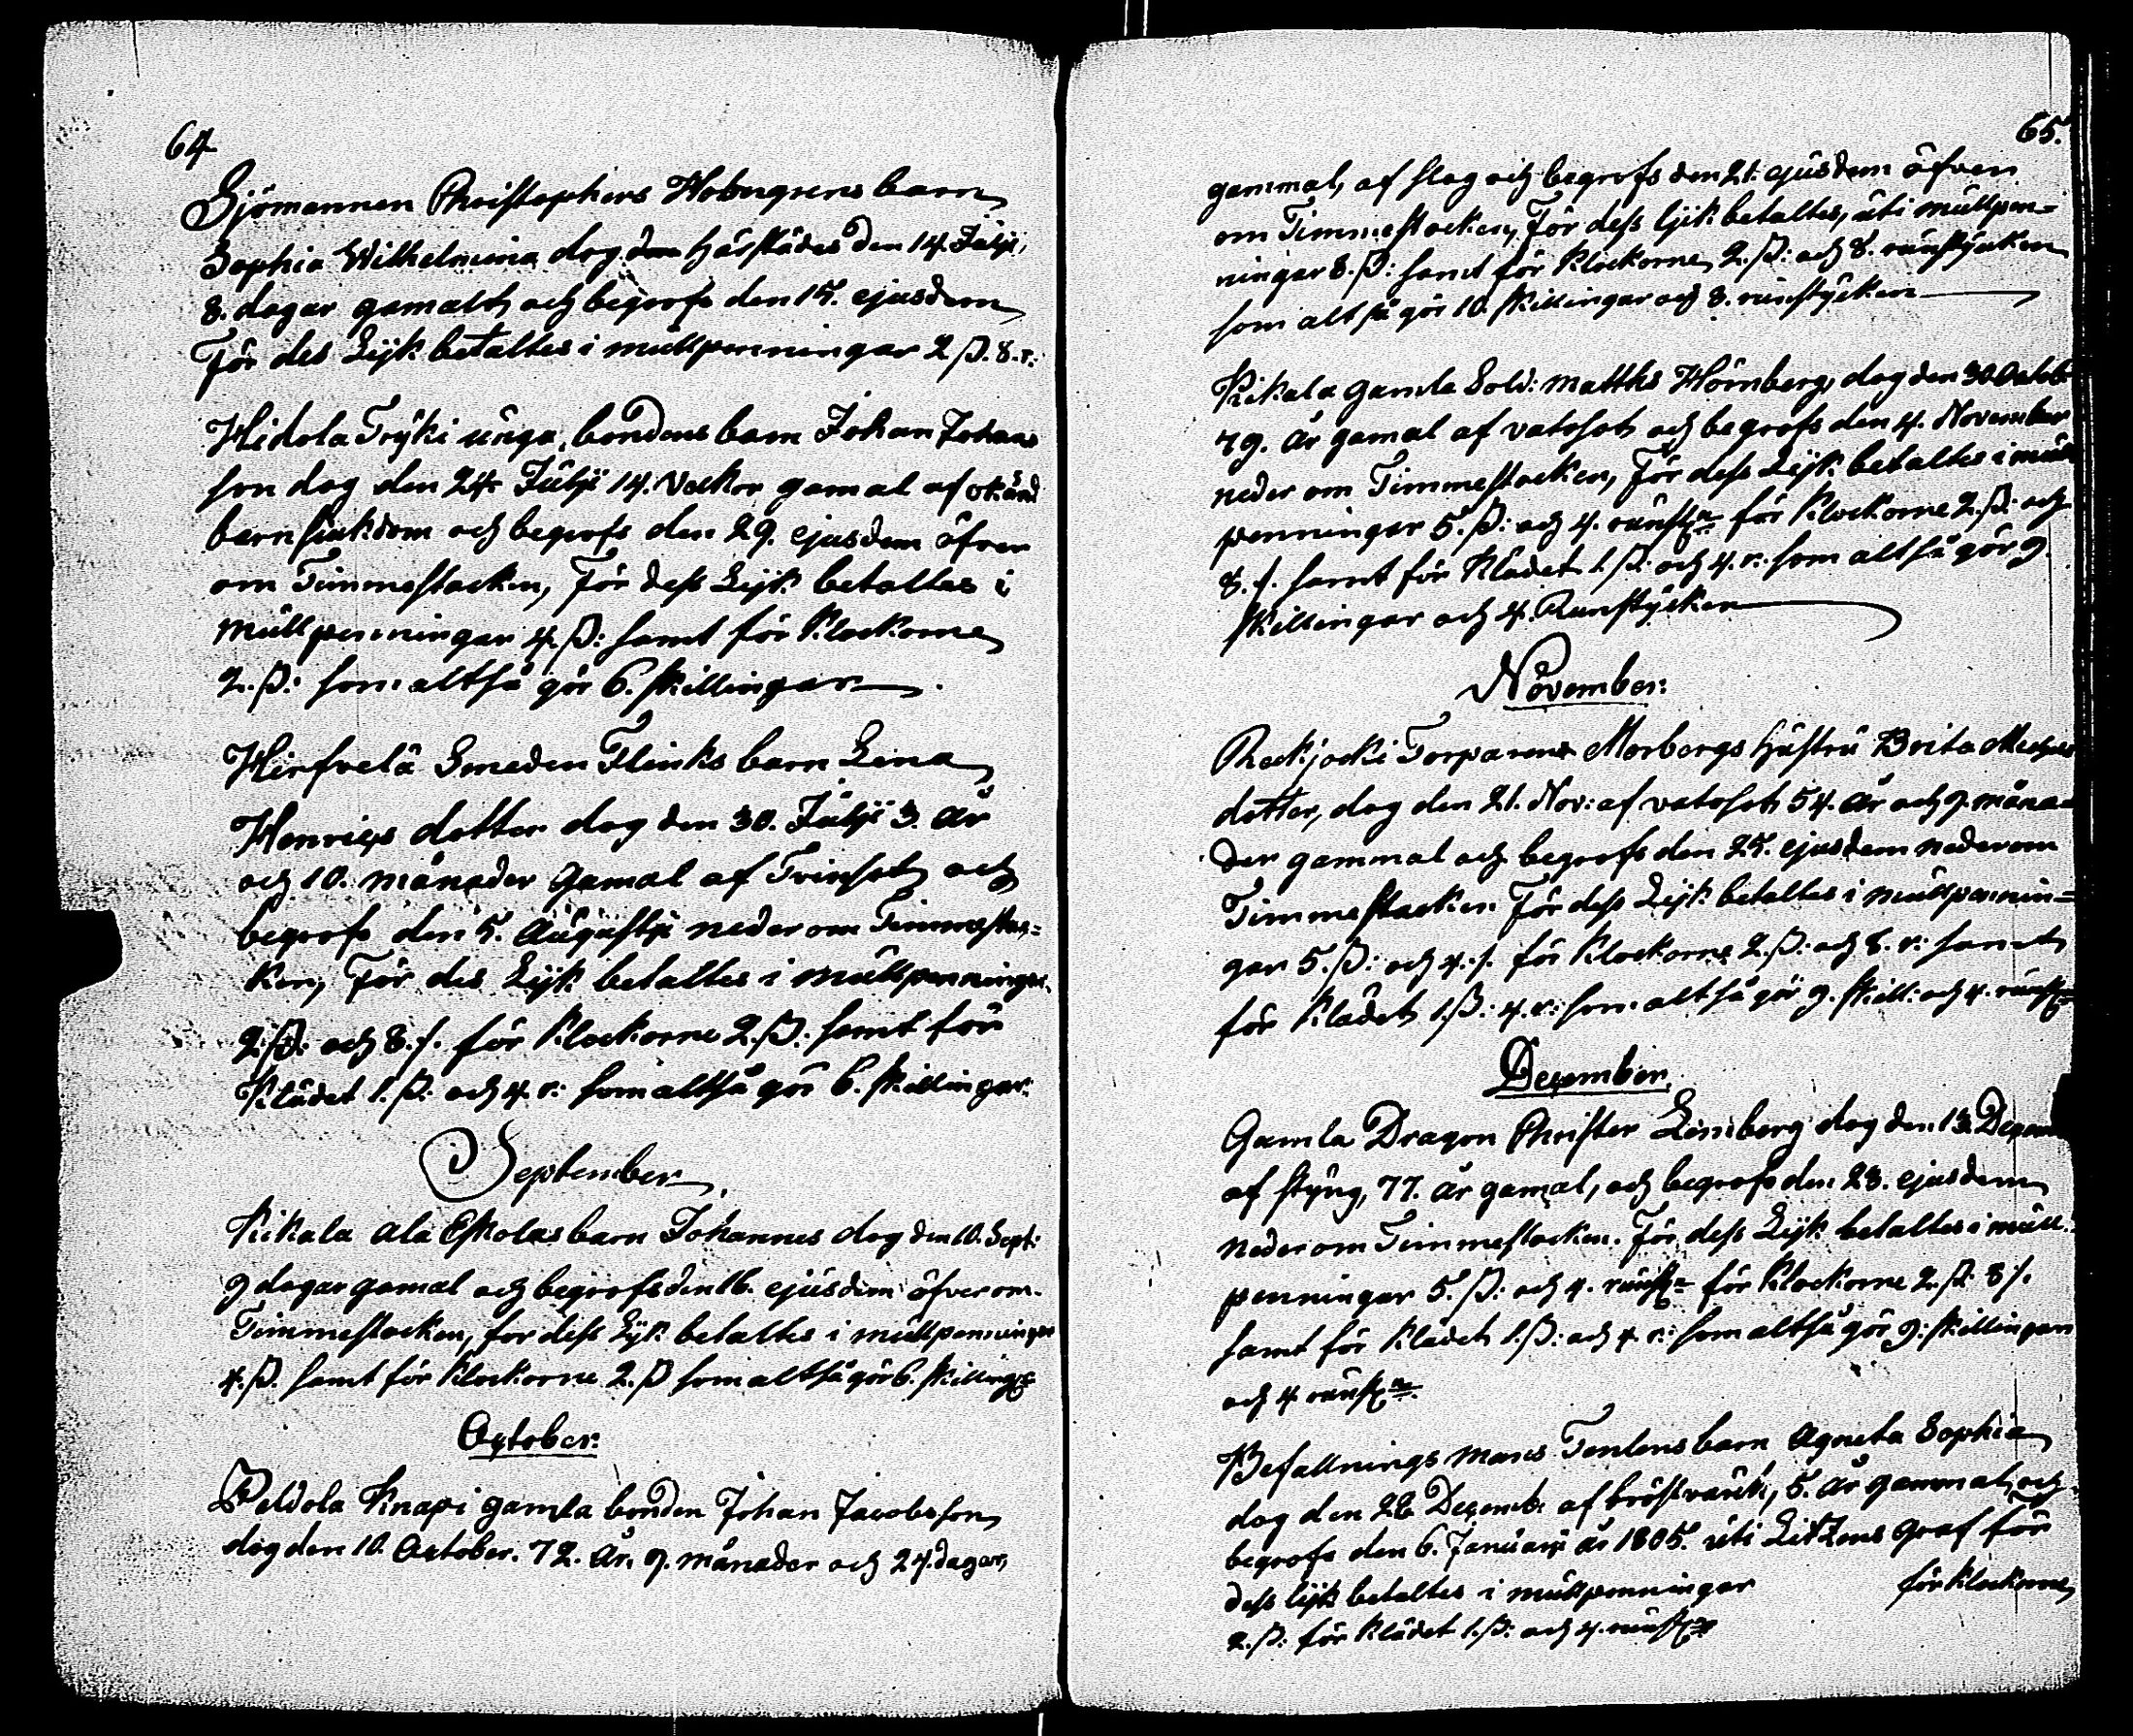 64
Sjömannen Christophers Holmgrens barn
Sophia Wilhelmina dog den härstädes den 14. Julji,
8. dagar gamalt och begrofs den 15. ejusdem
För des Lijk betaltes i mullpenningar 2 ß. 8. r:
Hidola Tryki unga bondens barn Johan Johans
son dog den 24 Julji 14. veckor gamal af okänd
barnsiukdom och begrofs den 29. ejusdem öfver
om Timmestocken, För dess Lijk betaltes i
mullpenningar 4. ß: samt för Klockorne
2. ß: som altså gör 6. skillingar
Hirfvelä Smeden Flinks barn Lena
Henrics dotter dog den 30. Julji 3. år
och 10. månader Gamal af Tvinsot och
begrofs den 5. Augustji neder om Timmestoc=
ken, För des Lijk betaltes i mullpenningar
2. ß: och 8. r. för Klockorne 2. ß: samt för
Klädet 1. ß: och 4. r: som altså gör 6. skillingar:
September
Kikala ala Eskolas barn Johannes dog den 10. Sept:
9 dagar gamal och begrofs den 16. ejusdem öfver om
Timmestocken, for dess Lijk betaltes i mullpenningar
4. ß. samt för Klockorne 2. ß som altså gör 6. skilling
October:
Peldola Knapi gamla bonden Johan Jacobsson
dog den 10. October. 72. år. 9. månader och 24. dagar,
65.
gammal, af slag och begrofs den 21. ejusdem öfven
om Timmestocken, För dess lijk betaltes, uti mullpen=
ningar 8. ß: samt för Klockorne 2. ß: och 8. runstycken
som altså gör 10. skillingar och 8. runstycken
Kikala gamla Sold: Matths Hörnberg, dog den 30 Octob
79. år gamal af vatosot och begrofs den 4. November
neder om Timmestocken, För dess Lijk betaltes i mull
penningar 5. ß: och 4. runst för Klockorne 2. ß: och
8. r. samt för Klädet 1. ß: och 4. r: som altså gör 9.
skillingar och 4. Runstycken
November:
Reckjocki Torparens Morbergs hustru Brita
dotter, dog den 21. Nov: af vatosot 54. år och 9. måna=
der gammal och begrofs den 25. ejusdem neder om
Timmestocken För dess Lijk betaltes i mullpennin=
gar 5. ß: och 4. r. för Klockorne 2. ß: och 8. r: samt
för Klädet 1. ß: 4. r: som altså gör 9. skill: och 4. runst
December.
Gamla Dragon Christer Lindberg dog den 13. Decem
af styng, 77. år gamal, och begrofs den 23. ejusdem
neder om Timmestocken. För dess Lijk betaltes i mull
penningar 5. ß: och 4. runst för Klockorne 2. ß: 8 r.
samt för Klädet 1. ß: och 4 r: som altså gör 9: skillingar
och 4 runst
Befallnings mans Tenlens barn Agneta Sophia
dog den 28 Decemb. af bröstvärk, 5. år gammal, och
begrofs den 6. Januarii år 1805. uti Graf för
dess lijk betaltes i mullpenningar för Klockorne
2. ß: för Klädet 1. ß: och 4. runst